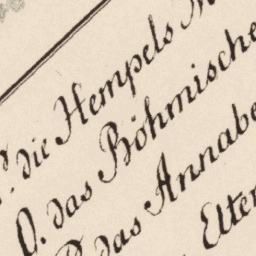 die Hempels
O. das Böhmische
das Annabe
Elter